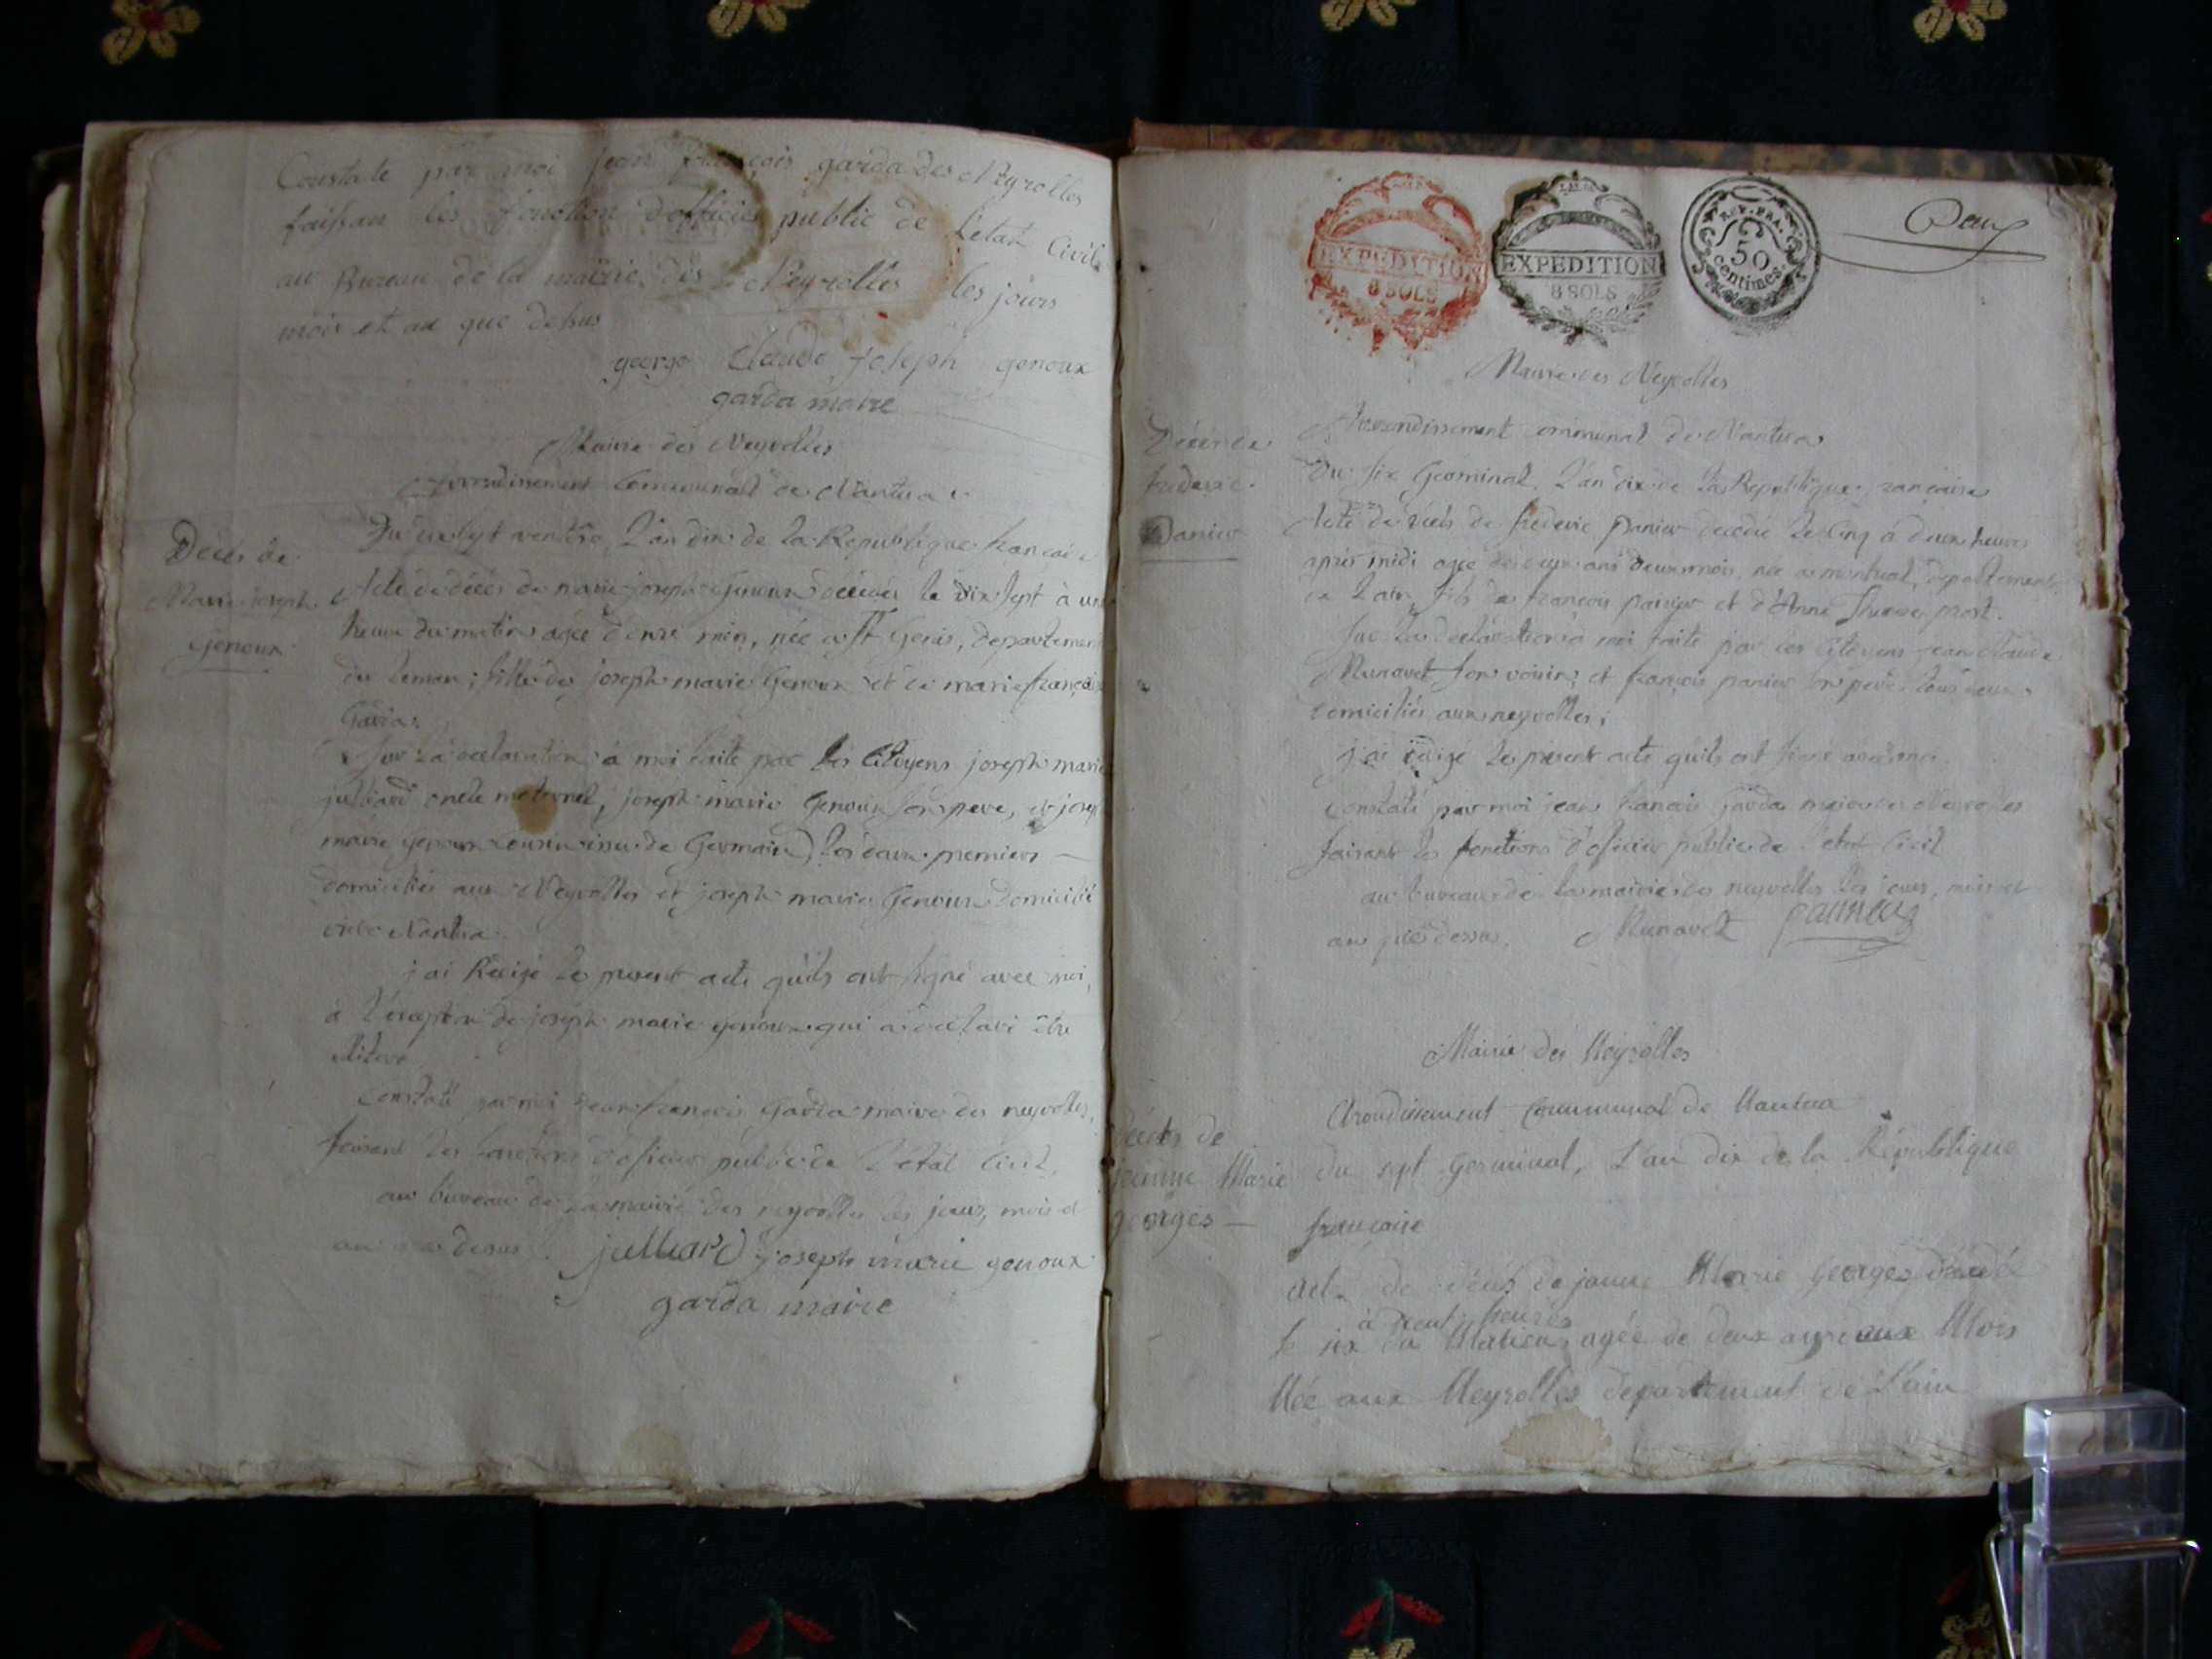 Constaté par moi jean françois garda des Neyrolles
faissan les fonction d'officier public de L'etat Civil
au Bureau de la mairie des Neyrolles les jours
mois et an que desus
george Claude joseph genoux
garda maire
Mairie des Neyrolles
arrondissement Communal de Nantua
ventôse, L'an dix de La Republique française
Décès de
Marie joseph
Genoux
Acte de décès de marie joseph Genoux décédée le dix sept à une
heure du matin agée d'onze mois, née a St Genis, departement
du Leman; fille de joseph marie Genoux et de marie françoise
Garda.
Sur La declaration à moi faite par les Citoyens joseph marie
julliard oncle maternel, joseph marie Genoux son pere, et joseph
marie genoux cousin issu de Germain, les deux premiers
domiciliés aux Neyrolles et joseph marie Genoux domicilié
Nantua.
j'ai Rédigé le present acte qu'ils ont signé avec moi,
à l'exeption de joseph marie genoux qui a déclaré être
Constaté par moi jean françois Garda maire des neyrolles,
faisant Les fonctions d'oficier public de L'etat Civil,
au bureau de la mairie des neyrolles les jour, mois et
an que desus. julliard joseph marie genoux
garda maire
Deux
EXPEDITION
8 SOLS
EXPEDITION
8 SOLS
REP. FRA.
50
centimes.
Mairie des Neyrolles
Arrondissement communal de Nantua
Décès de
frederic
Panier
Du six Germinal L'an dix de La Republique française
Acte de décès de frederic panier décédé Le cinq à deux heures
après midi agé de deux ans deux mois, né a montreal, departement
de L'ain, fils de françois panier et d'Anne
Sur La declaration à moi faite par les Citoyens jean claude
Munavet son voisin, et françois panier son pere tous deux
domiciliés aux neyrolles;
j'ai rédigé le present acte qu'ils ont signé avec moi.
Constaté par moi jean françois Garda maire des Neyrolles
faisant les fonctions d'oficier public de L'etat Civil
au bureau de la mairie des neyrolles les jour, mois et
an que dessus. Munavet
Mairie des Neyrolles
Arondissement Communal de Nantua
Décès de
jeanne Marie
georges
du sept Germinal, L'an dix de la République
française
acte de décés de jeanne Marie Georges décédée
à heures
le six du Matin, agée de deux ans Mois
Née aux Neyrolles departement de L'ain